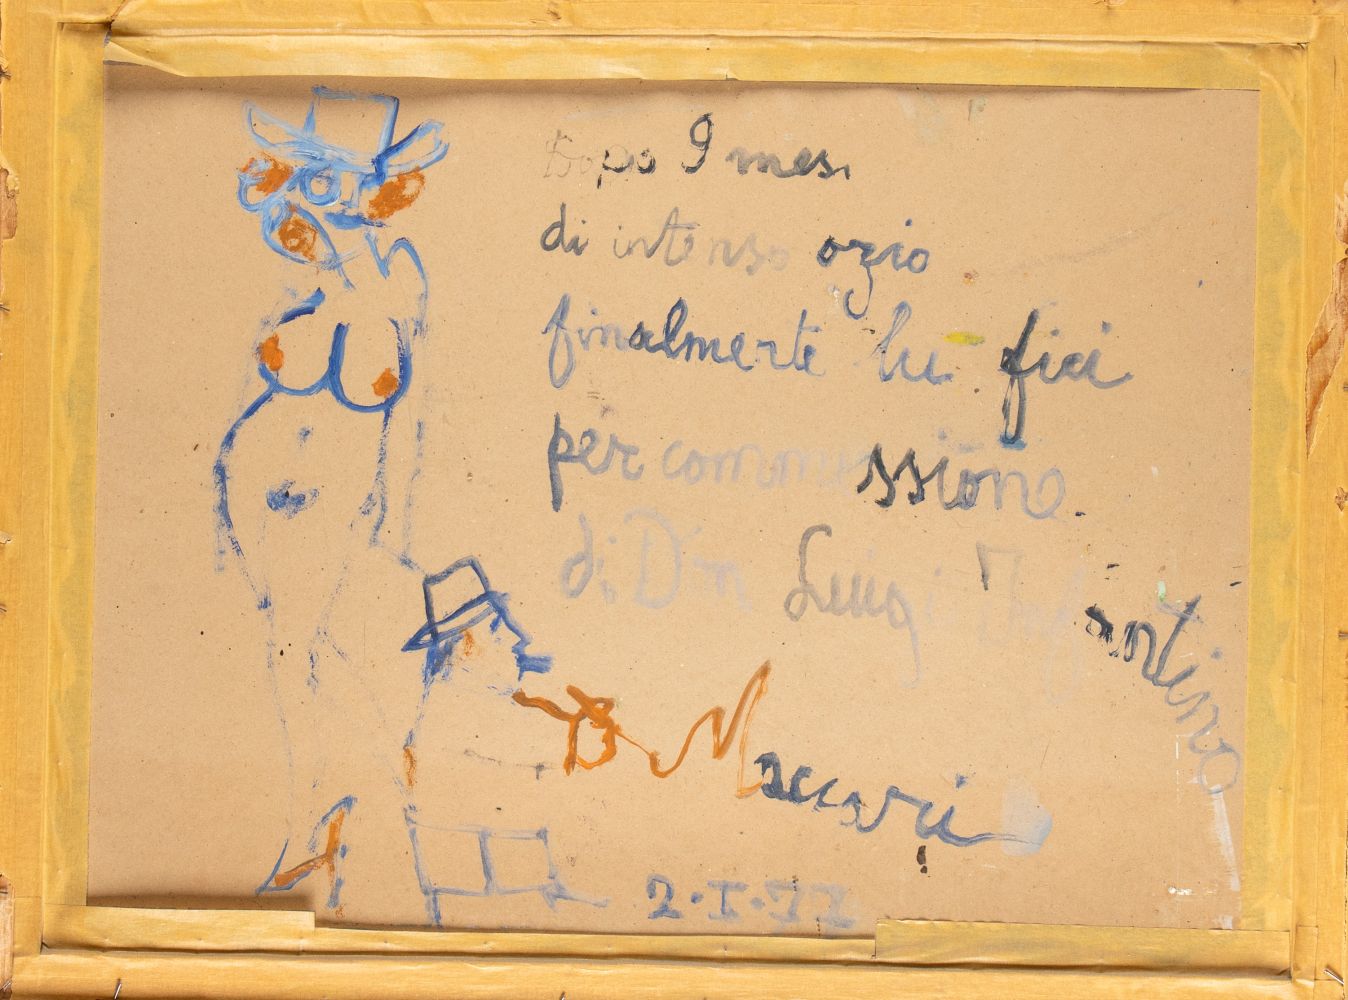 Dopo 9 mesi
di intenso ozio
finalmente lu fici
per commissione
di D'n Luigi Infantino
Maccari
2·I·77